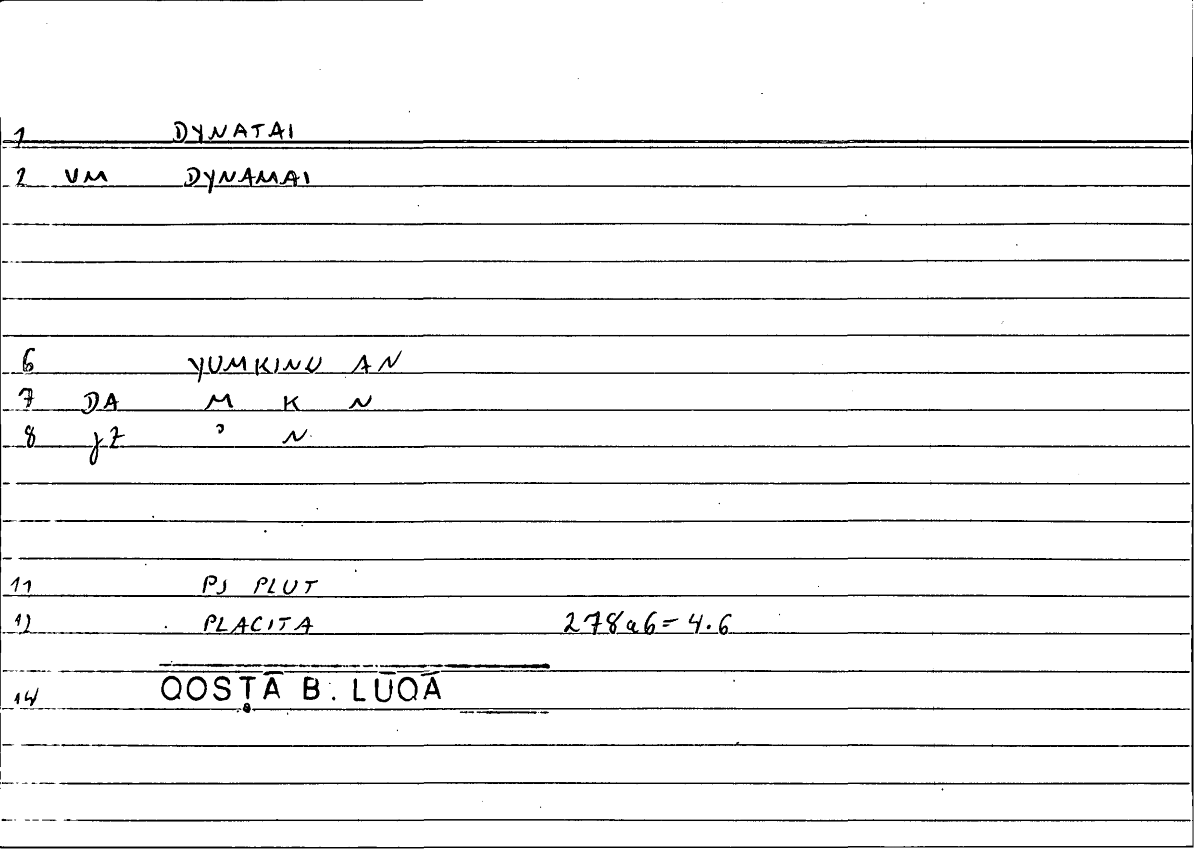 1 DYNATAI
2 VM DYNAMAI
6 YUMKINU AN
7 DA M K N
8 jZ ʾ N
11 PJ PLUT
12 PLACITA 278a6=4.6
14 QOSṬĀ B. LŪQĀ